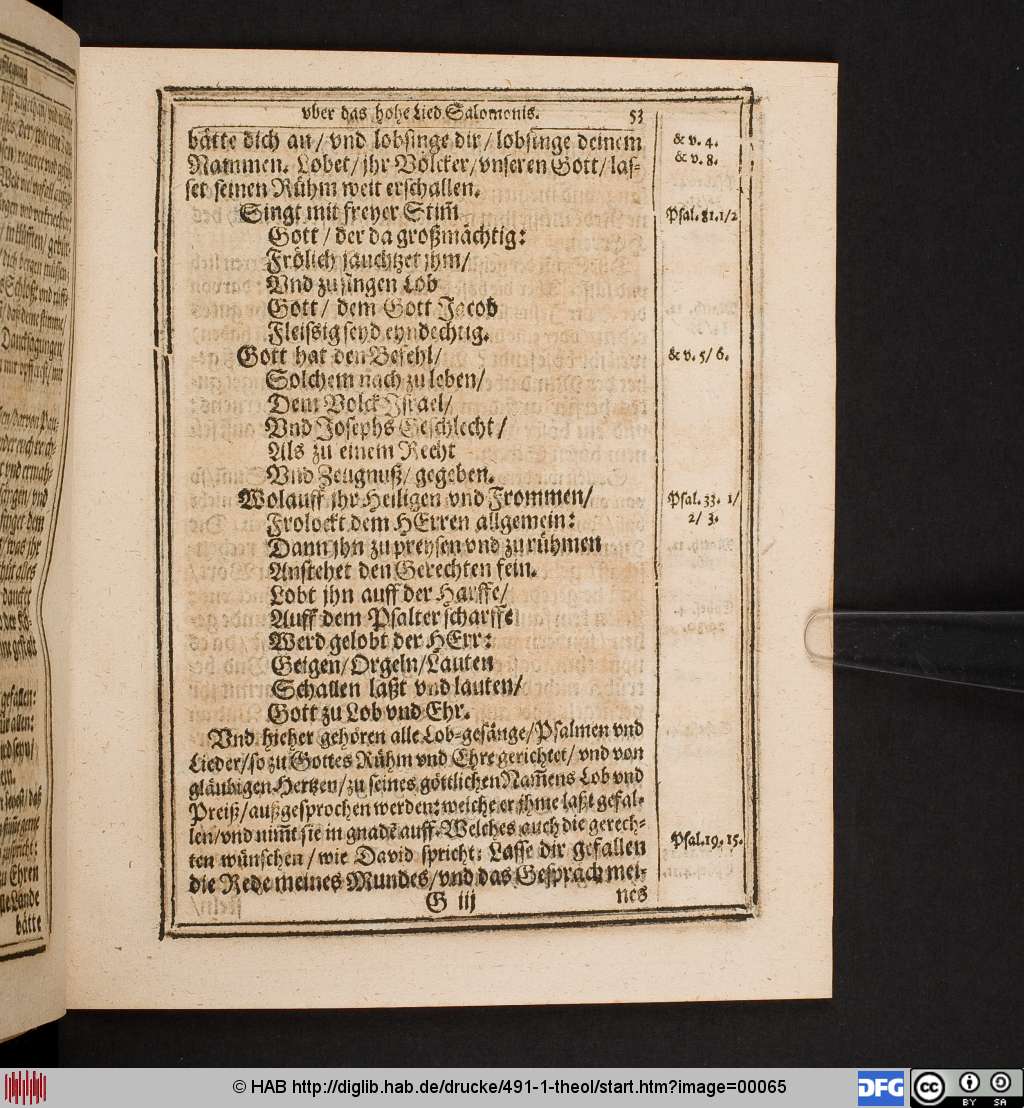 vber das hohe Lied Salomonis. 53
bätte dich an / vnd lobsinge dir / lobsinge deinem
Nammen. Lobet / jhr Völcker / vnseren Gott / las-
set seinen Rühm weit erschallen.
& v. 4.
& v. 8.
Singt mit freyer Stim̃
Psal. 81. 1/2
Gott / der da großmächtig:
Frölich jauchtzet jhm /
Vnd zu singen Lob
Gott / dem Gott Jacob
Fleissig seyd eyndechtig.
Gott hat den Befehl /
& v. 5/ 6.
Solchem nach zu leben /
Dem Volck Israel /
Vnd Josephs Geschlecht /
Als zu einem Recht
Vnd Zeugnuß / gegeben.
Wolauff jhr Heiligen vnd Frommen /
Psal. 33. 1/
2/ 3.
Frolockt dem HErren allgemein:
Dann jhn zu preysen vnd zu rühmen
Anstehet den Gerechten fein.
Lobt jhn auff der Harffe /
Auff dem Psalter scharffe
Werd gelobt der HErr:
Geigen / Orgeln / Lauten
Schallen laßt vnd lauten /
Gott zu Lob vnd Ehr.
Vnd hieher gehören alle Lob-gesänge / Psalmen vnd
Lieder / so zu Gottes Rühm vnd Ehre gerichtet / vnd von
gläubigen Hertzen / zu seines göttlichen Nam̃ens Lob vnd
Preiß / außgesprochen werden: welche er jhme laßt gefal-
len / vnd nim̃t sie in gnadẽ auff. Welches auch die gerech-
ten wünschen / wie David spricht: Lasse dir gefallen
Psal. 19. 15.
die Rede meines Mundes / vnd das Gespräch mei-
G iij nes
bätte
© HAB http://diglib.hab.de/drucke/491-1-theol/start.htm?image=00065
DFG
cc BY SA